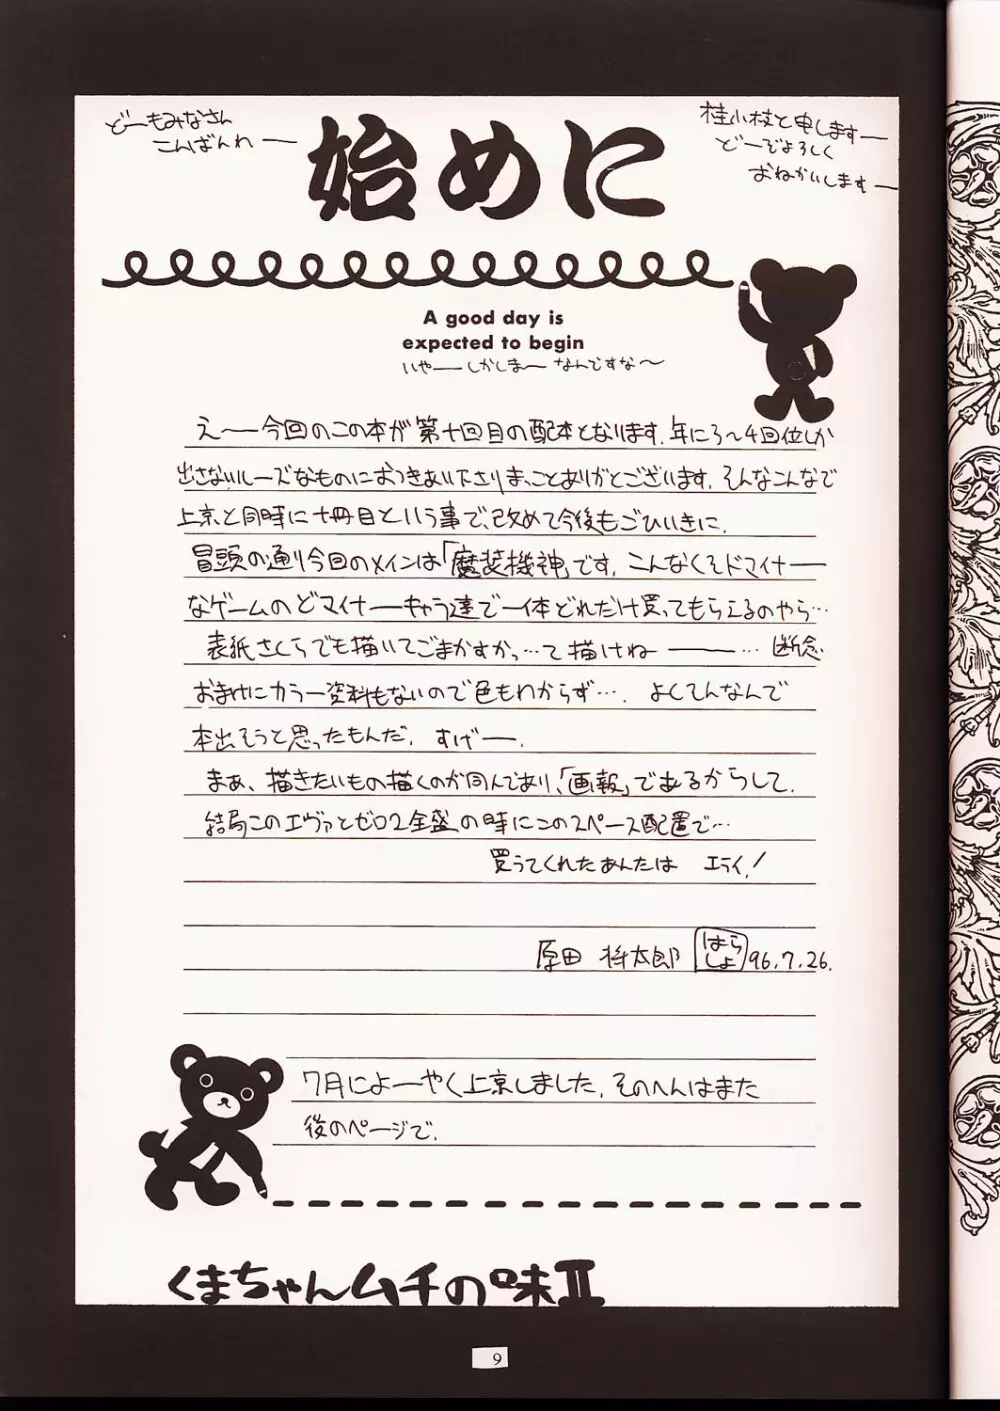 どーもみなさん
こんばんわー
始めに
桂小枝と申しますー
どーぞよろしく
おねがいしますー
A good day is
expected to begin
いやーしかしまーなんですな〜
え——今回のこの本が第十回目の配本となります。年に3〜4回位しか
出さないルーズなものにおつきあい下さりまことにありがとございます。そんなこんなで
上京と同時に十冊目という事で、改めて今後もごひいきに。
冒頭の通り今回のメインは「魔装機神」です。こんなくそドマイナー
なゲームのどマイナーキャラ達で一体どれだけ買ってもらえるのやら…
表紙さくらでも描いてごまかすかっ…て描けねー——…断念
おまけにカラー資料もないので色もわからず…。よくてんなんで
本出そうと思ったもんだ。すげー。
まぁ、描きたいもの描くのが同人であり、「画報」であるからして。
結局このエヴァとゼロ2全盛の時にこのスペース配置で…
買うてくれたあんたは エライ!
原田 将太郎 はらしょ 96.7.26.
7月によーやく上京しました。そのへんはまた
後のページで。
くまちゃんムチの味II
9